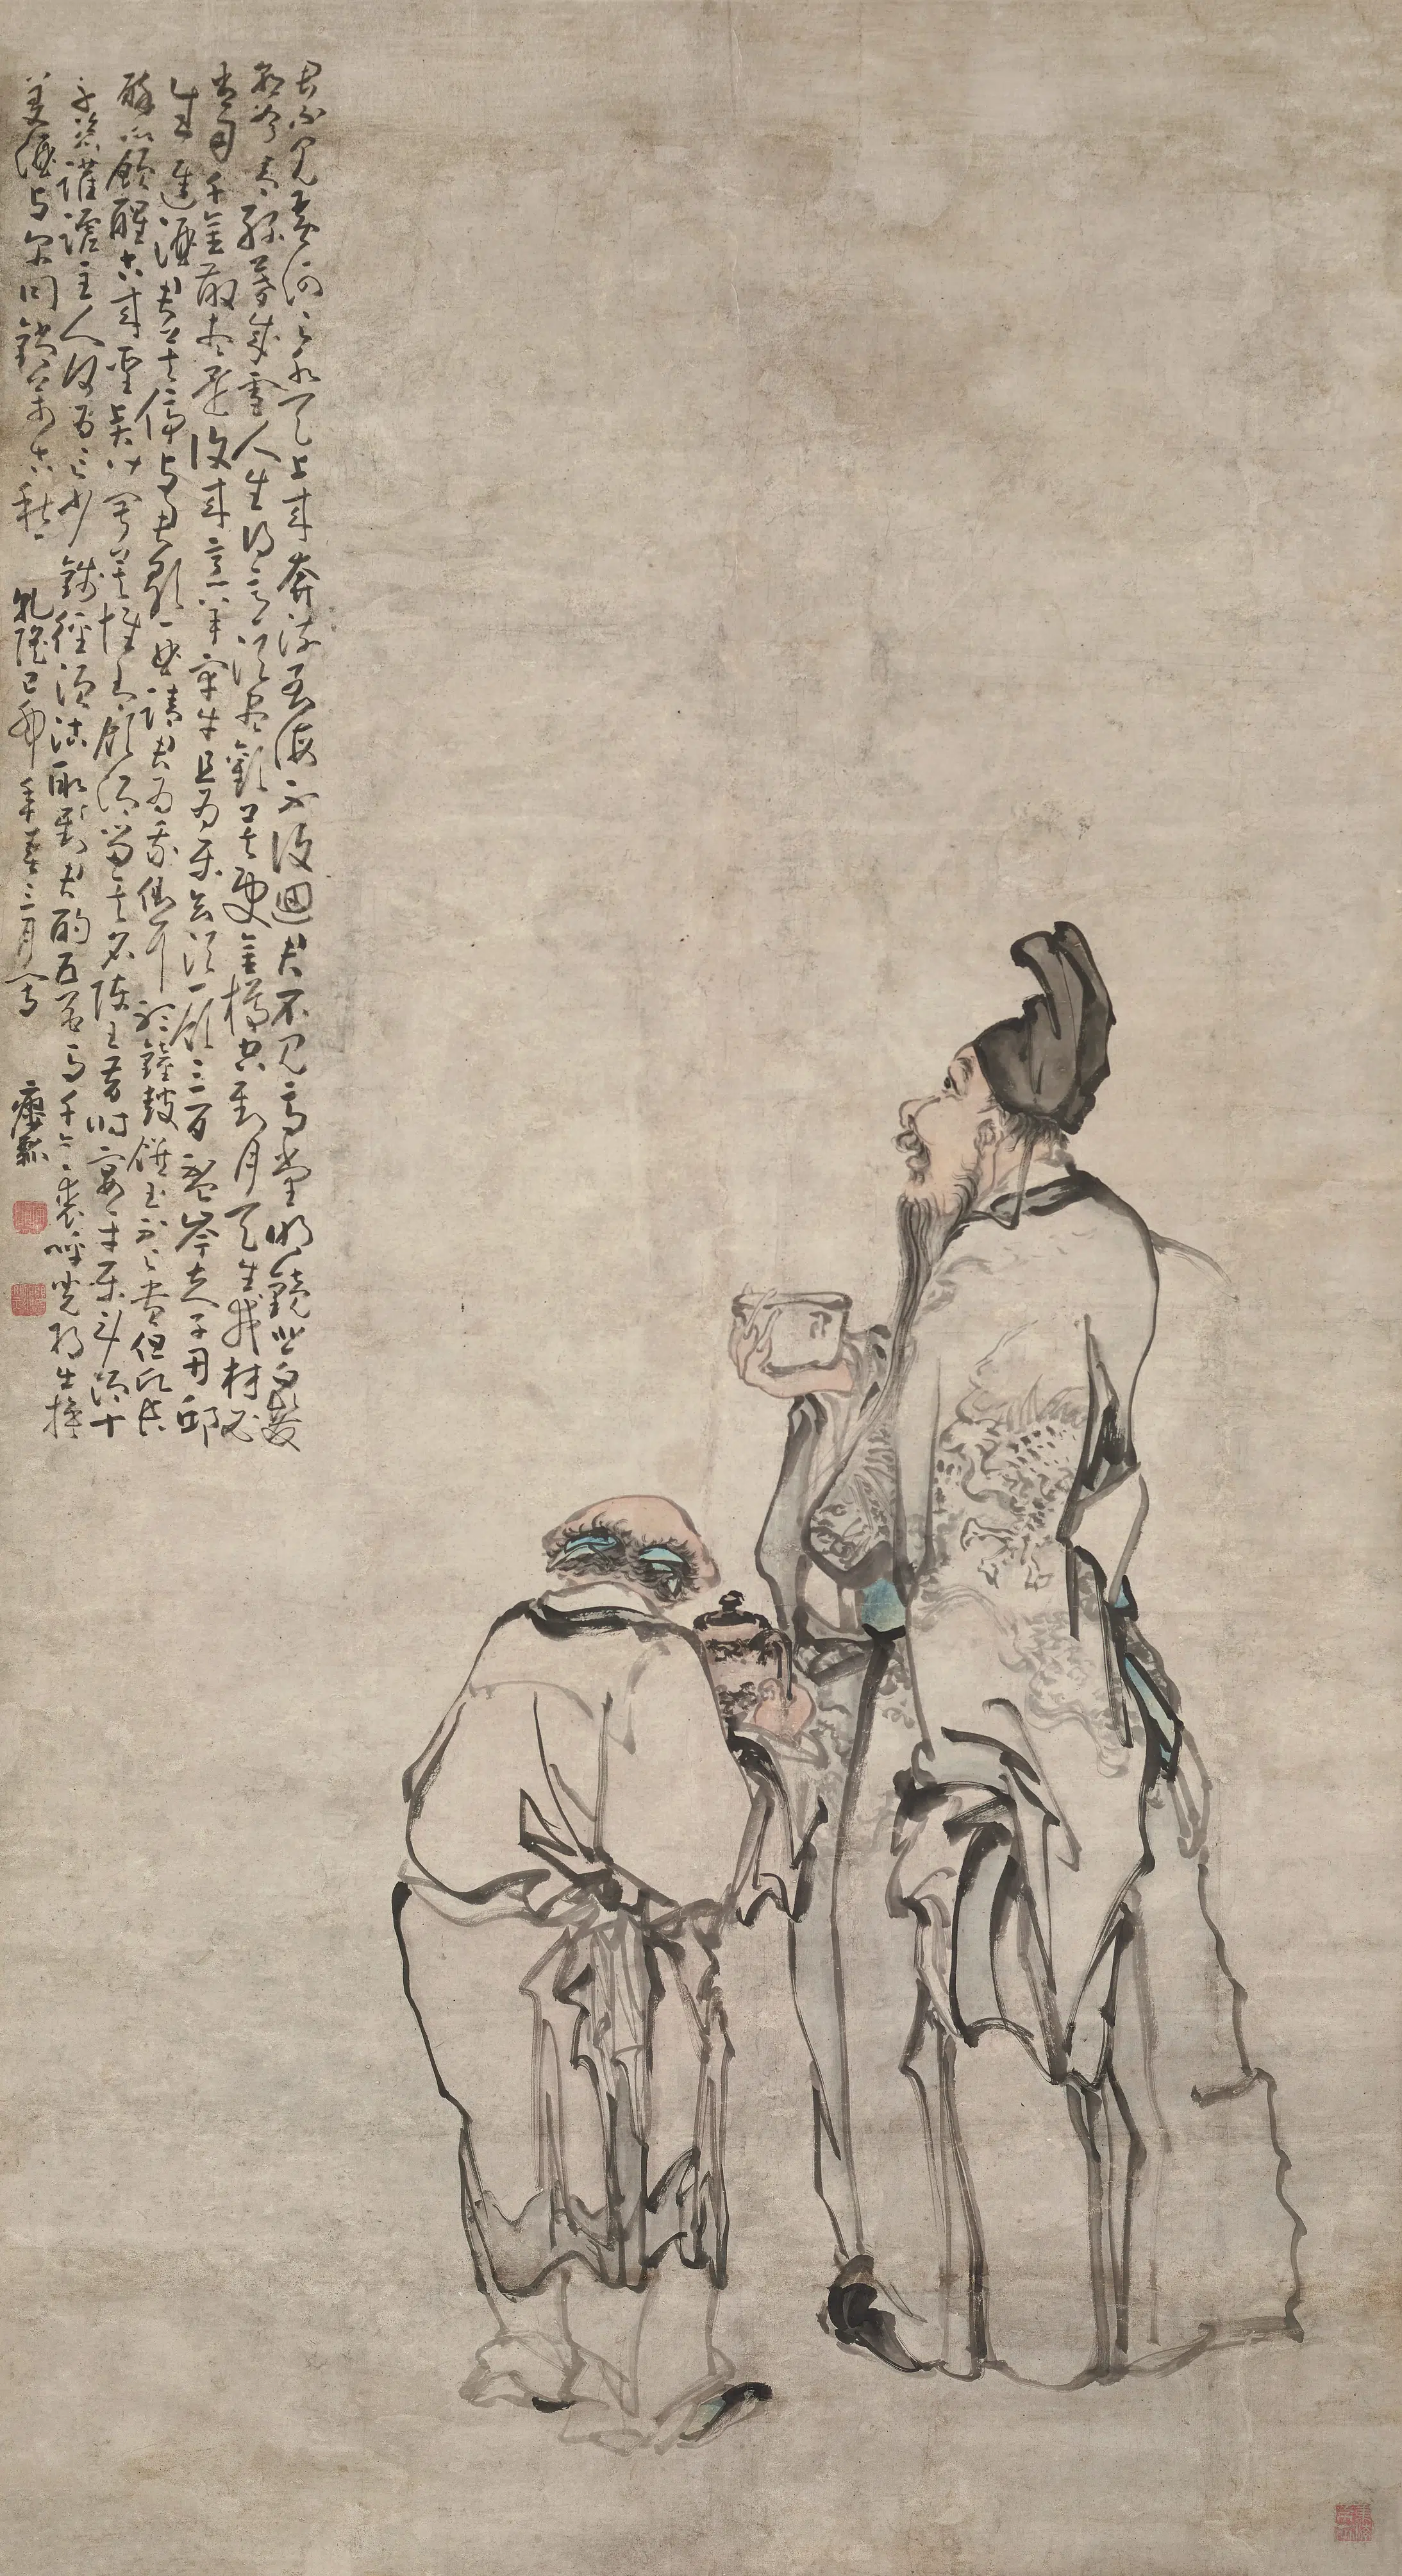 君不見黃河之水天上來奔流至海不復迴君不見高堂明鏡悲白髮
朝如青絲暮成雪人生得意須盡歡莫使金樽空對月天生我材必
有用千金散盡還復來烹羊宰牛且為樂會須一飲三百盃岑夫子丹邱
生進酒君莫停與君歌一曲請君為我側耳聽鐘鼓饌玉不足貴但願長
醉不願醒古來聖賢皆寂寞惟有飲者留其名陳王昔時宴平樂斗酒十
千恣讙謔主人何為言少錢徑須沽取對君酌五花馬千金裘呼兒將出換
美酒與爾同銷萬古愁 乾隆己卯年春三月寫 癭瓢